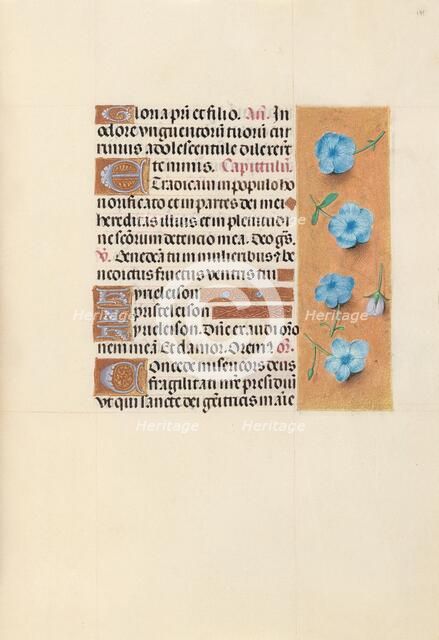 Gloria pri et filio. An. In
odore vnguentoru tuoru cur
rimus adolescentile dilexerut
te nimis. Capittulu.
Et radicaui in populo ho
norificato et in partes dei mei
hereditas illius et in plenitudi
ne scoru detencio mea. Deo gs.
V. Benedca tu in mulieribus z be
nedictus fructus ventris tui
Kyrieleison
Xpisteleison
Kyrieleison. Dne exaudi oro
nem mea Et clamor. Oremus or.
Concede misericors deus
fragilitati nre presidiu
vt qui sancte dei genitricis m
Heritage
Heritage
Heritage
Heritage
Heritage
Heritage
Heritage
Heritage